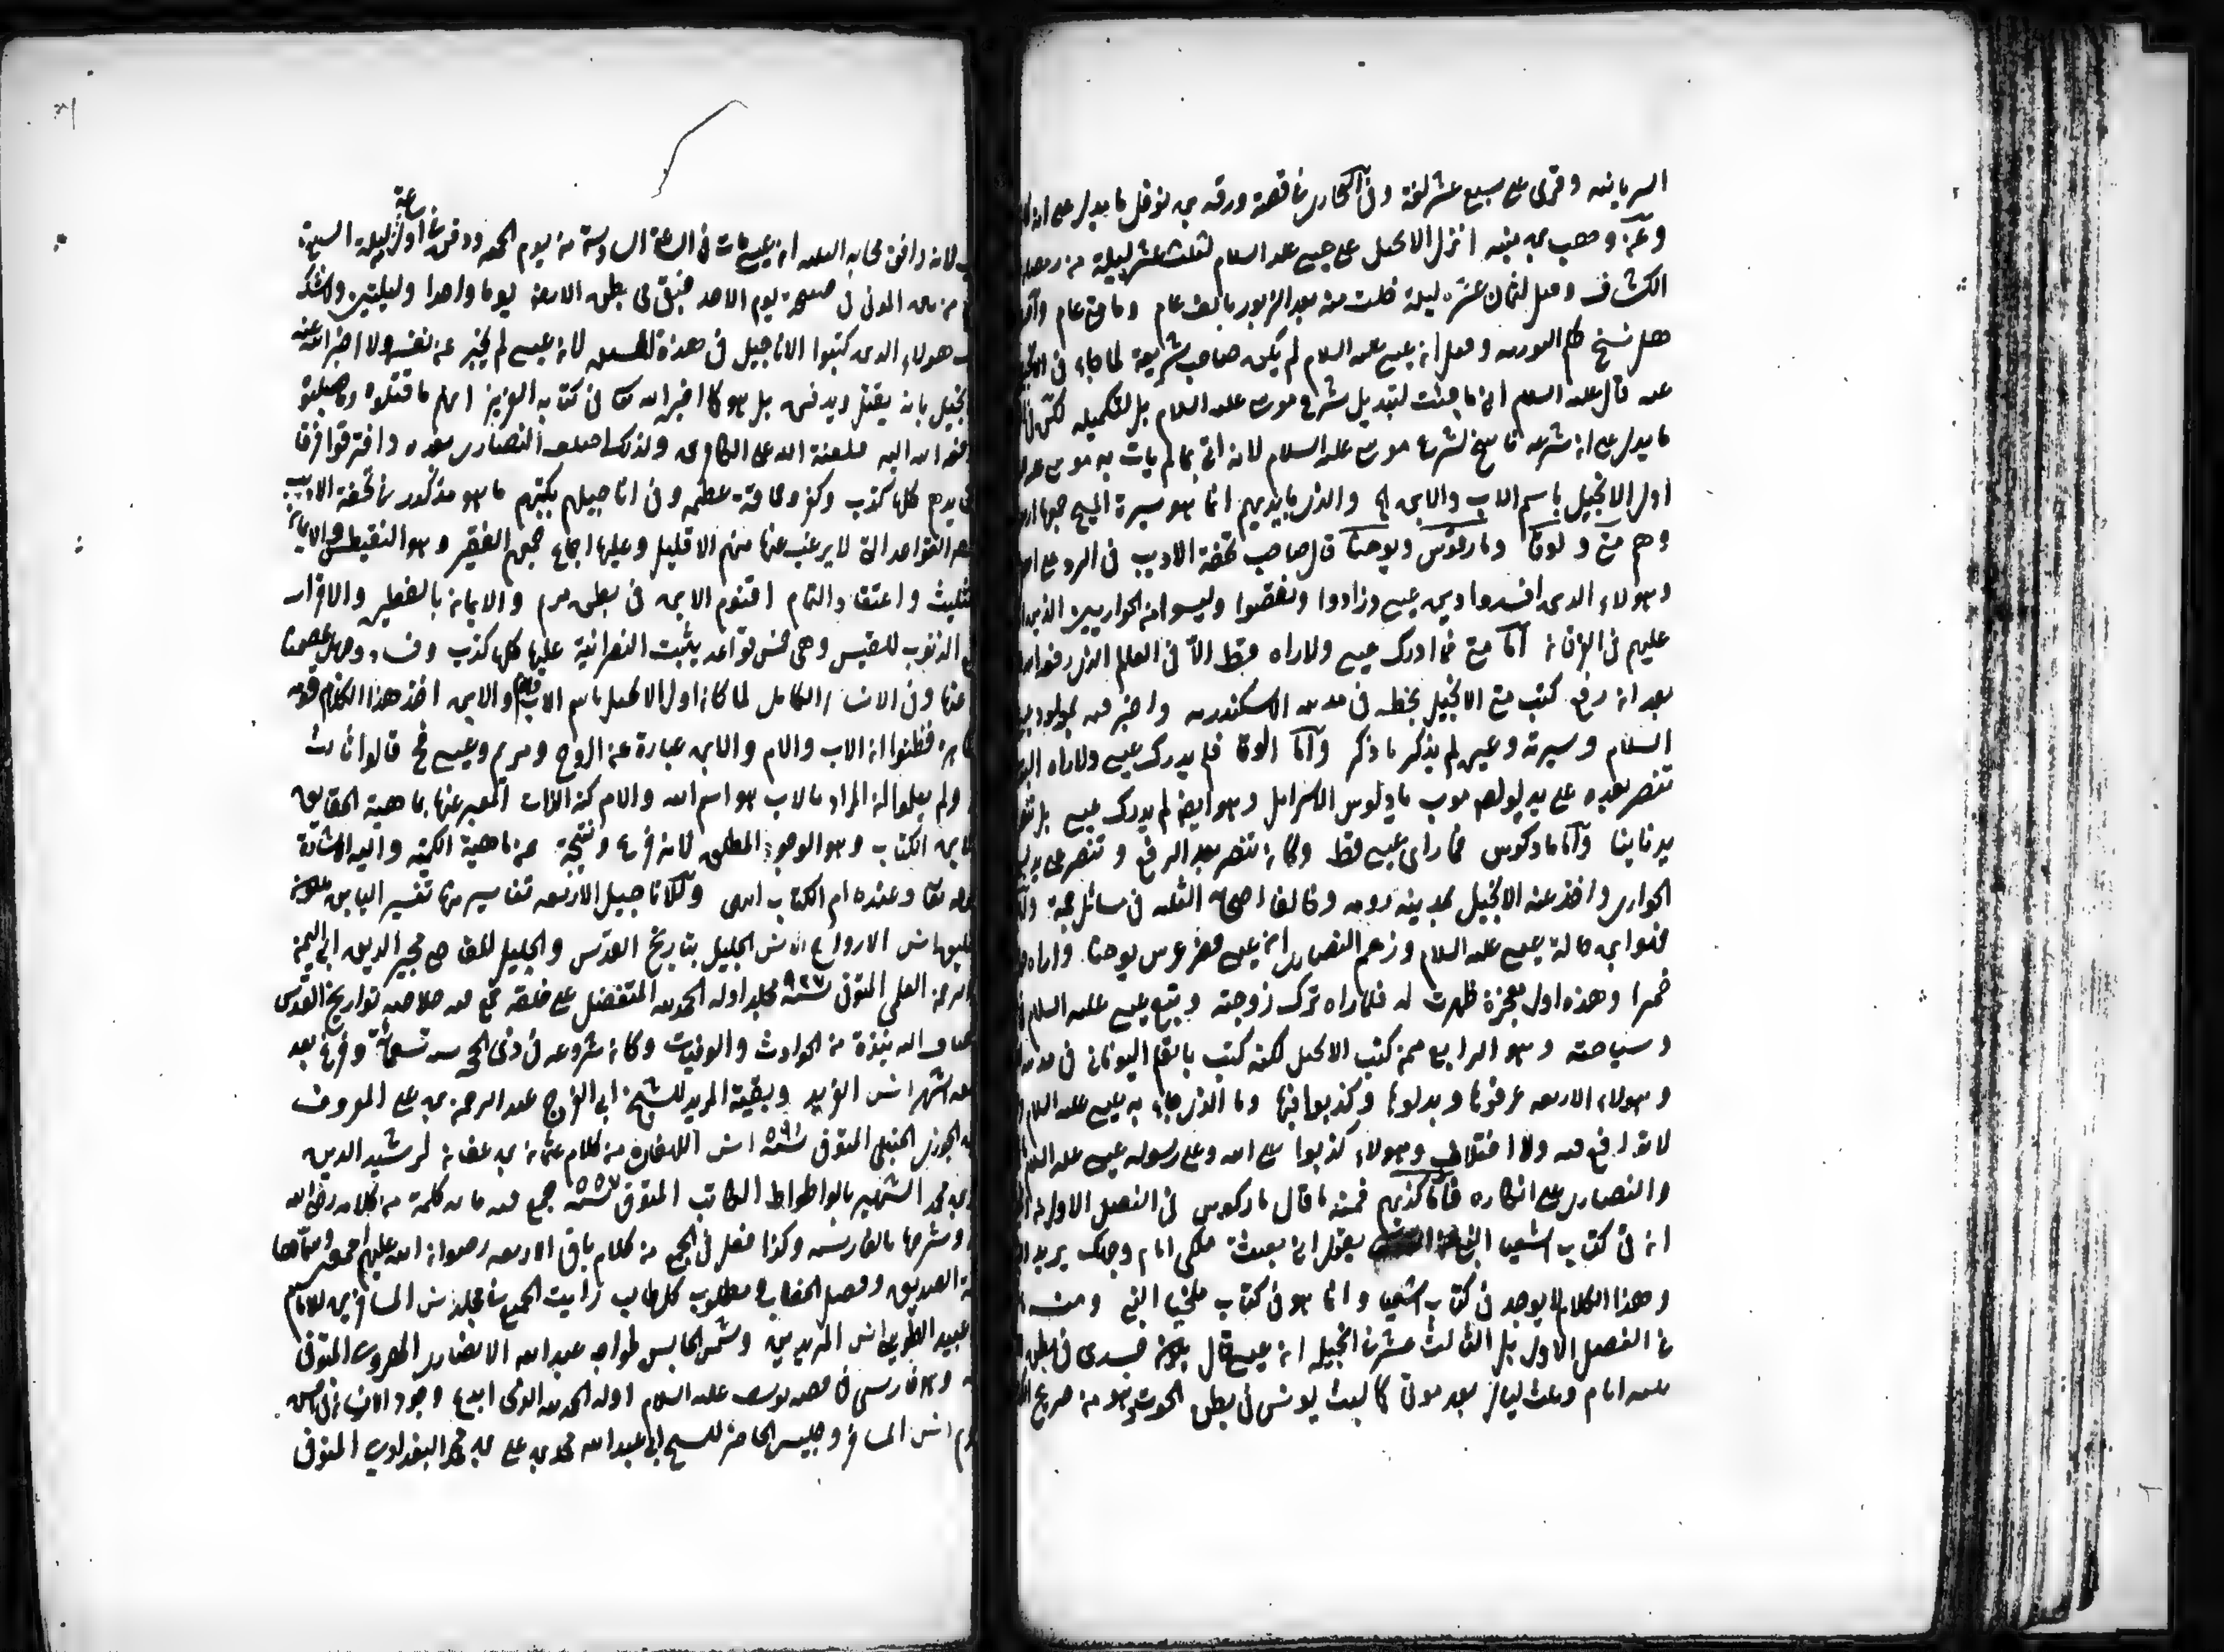 السريانية وقرئ على سبع عشر لغة وفى البخارى فى قصة ورقة بن نوفل ما يدل على انه
وعن وهب بن منبه انزل الانجيل على عيسى عليه السلام لثلث عشر ليلة من رمضان
الكشاف وقيل لثمان عشرة ليلة خلت منه بعد الزبور بالف عام ومائتى عام
هل نسخ حكم التورية وقيل ان عيسى عليه السلام لم يكن صاحب شريعة لما جاء فى
عنه قال عليه السلام انى ما جئت لتبديل شرع موسى عليه السلام بل لتكميله لكن
ما يدل على ان شرعه ناسخ لشرع موسى عليه السلام لانه اتى بما لم يات به موسى
اول الانجيل باسم الاب والابن الخ والذى بايديهم انما هو سيرة المسيح جمعها
وهم متى ولوقا ومارقوس ويوحنا قال صاحب تحفة الاديب فى الرد على
وهؤلاء الذين افسدوا دين عيسى وزادوا ونقصوا وليسوا من الحواريين الذين
عليهم فى القران اما متى فما ادرك عيسى ولا راه قط الا فى العام الذى رفعه الله
بعد ان رفع كتب متى الانجيل بخطه فى مدينة الاسكندرية واخبر فيه بمولد
السلام وسيرته وغيره لم يذكر ما ذكر واما لوقا فلم يدرك عيسى ولا راه
تنصر بعده على يد بولص معرب باولوس الاسرايلى وهو ايضا لم يدرك عيسى بل
يد نانيا واما ماركوس فما راى عيسى قط وكان تنصر بعد الرفع وتنصر على يد
الحوارى واخذ عنه الانجيل بمدينة رومه وخالف اصحابه الثلثة فى مسائل جمة
فهو ابن خالة عيسى عليه السلام وزعم النصارى ان عيسى حضر عرس يوحنا
خمرا وهذه اول معجزة ظهرت له فلما راه ترك زوجته وتبع عيسى عليه السلام
وسياحته وهو الرابع ممن كتب الانجيل لكنه كتب بالقلم اليونانى فى مدينة
وهؤلاء الاربعة حرفوها وبدلوها وكذبوا فيها وما الذى جاء به عيسى عليه السلام
لا تدافع فيه ولا اختلاف وهؤلاء كذبوا على الله وعلى رسوله عيسى عليه السلام
والنصارى على انكاره فاما كذبهم فمنه ما قال ماركوس فى الفصل الاول
ان فى كتاب اشعيا النبى يقول انى بعثت ملكى امام وجهك يريد
وهذا الكلام لا يوجد فى كتاب اشعيا وانما هو فى كتاب ملخيا النبى ومنه
فى الفصل الاول بل الثالث عشر من انجيله ان عيسى قال يكون جسدى فى بطن
ثلثة ايام وثلث ليال بعد موتى كما لبث يونس فى بطن الحوت وهو من صريح
لانه وافق اصحابه الثلثة ان عيسى مات فى الساعة السادسة من يوم الجمعة ودفن فى اول ساعة من ليلة السبت
من بين الموتى فى صبيحة يوم الاحد فبقى فى بطن الارض يوما واحدا وليلتين ولا شك
هؤلاء الذين كتبوا الاناجيل فى هذه المسئلة لان عيسى لم يخبر عن نفسه ولا اخبر الله عنه
بانه يقتل ويدفن بل هو كما اخبر الله تعالى فى كتابه العزيز انهم ما قتلوه وما صلبوه
رفعه الله اليه فلعنة الله على الكاذبين ولذلك اختلف النصارى بعده وافترقوا فرقا
كلها كذب وكفر وحماقة عظيمة وفى اناجيلهم بكتبهم ما هو مذكور فى تحفة الاديب
القواعد التى لا يرغب عنها منهم الا قليل وعليها اجماع جمهم الغفير وهو التغطيس والايمان
بالتثليث واعتقاد التحام اقنوم الابن فى بطن مريم والايمان بالفطير والاقرار
الذنوب للقسيس وهى خمس قواعد بنيت النصرانية عليها كلها كذب وفساد وجهل عصمنا
عنها وفى الانسان الكامل لما كان اول الانجيل باسم الاب والام والابن اخذ هذا الكلام قومه
فظنوا ان الاب والام والابن عبارة عن الروح ومريم وعيسى فح قالوا ثالث
ولم يعلموا ان المراد بالاب هو اسم الله والام كنه الذات المعبر عنها بماهية الحقايق
وبالابن الكتاب وهو الوجود المطلق لانه فرع ونتيجة عن ماهية الكنه واليه الاشارة
قوله تعالى وعنده ام الكتاب انتهى وللاناجيل الاربعة تفاسير منها تفسير الياس
انس الارواح انس الجليل بتاريخ القدس والخليل للقاضى مجير الدين ابى اليمن
الرحمن العليمى المتوفى سنة ٩٢٧ مجلد اوله الحمد لله المتفضل على خلقه جمع فيه خلاصة تواريخ القدس
واضاف اليه نبذة من الحوادث والوفيات وكان شروعه فى ذى الحجة سنة تسعمائة وفرغ بعد
اشهر انس الفريد وبغية المريد للشيخ ابى الفرج عبد الرحمن بن على المعروف
الجوزى الحنبلى المتوفى سنة ٥٩٧ انس اللهفان من كلام عثمان بن عفان لرشيد الدين
محمد الشهير بالوطواط الكاتب المتوفى سنة ٥٥٧ جمع فيه مائة كلمة من كلامه رضى الله
وشرحها بالفارسية وكذا فعل فى الجمع من كلام باقى الاربعة رضوان الله عليهم اجمعين وسماها
الصديق وفصل الخطاب ومطلوب كل طالب رايت الجميع فى مجلد انس المسافرين للامام
انس المريدين وشمس المجالس لخواجه عبد الله الانصارى الهروى المتوفى
وهو فارسى فى قصة يوسف عليه السلام اوله الحمد لله الذى ابدع وجود الانسان
انس المسافر وجليس الحاضر للشيخ ابى عبد الله محمد بن على بن محمد البغدادى المتوفى